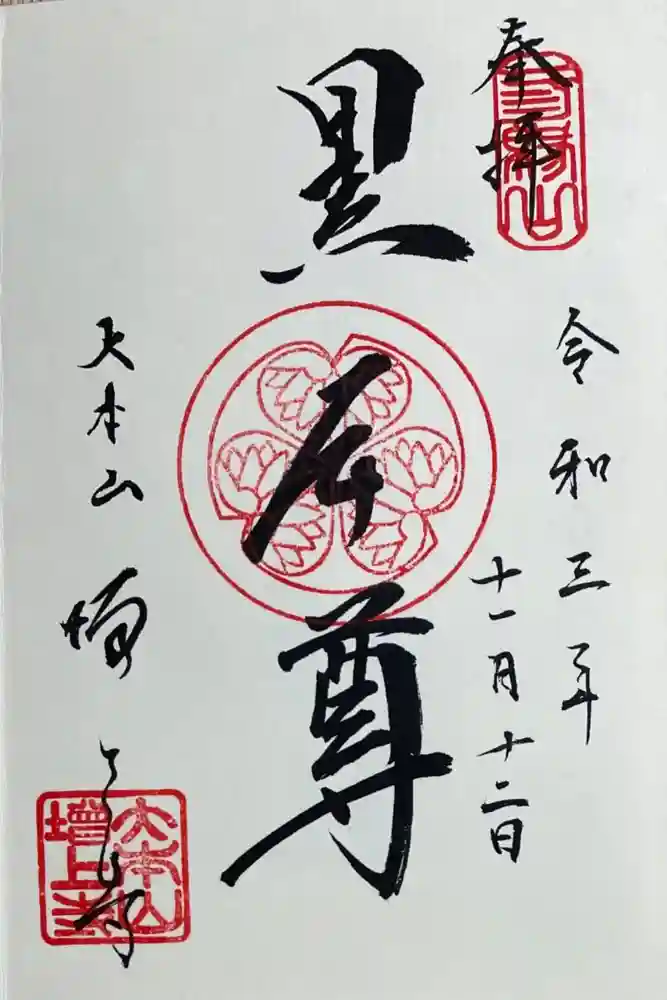 奉拝
三縁山
令和三年
十一月十二日
黒本尊
大本山 増上寺
大本山
増上寺